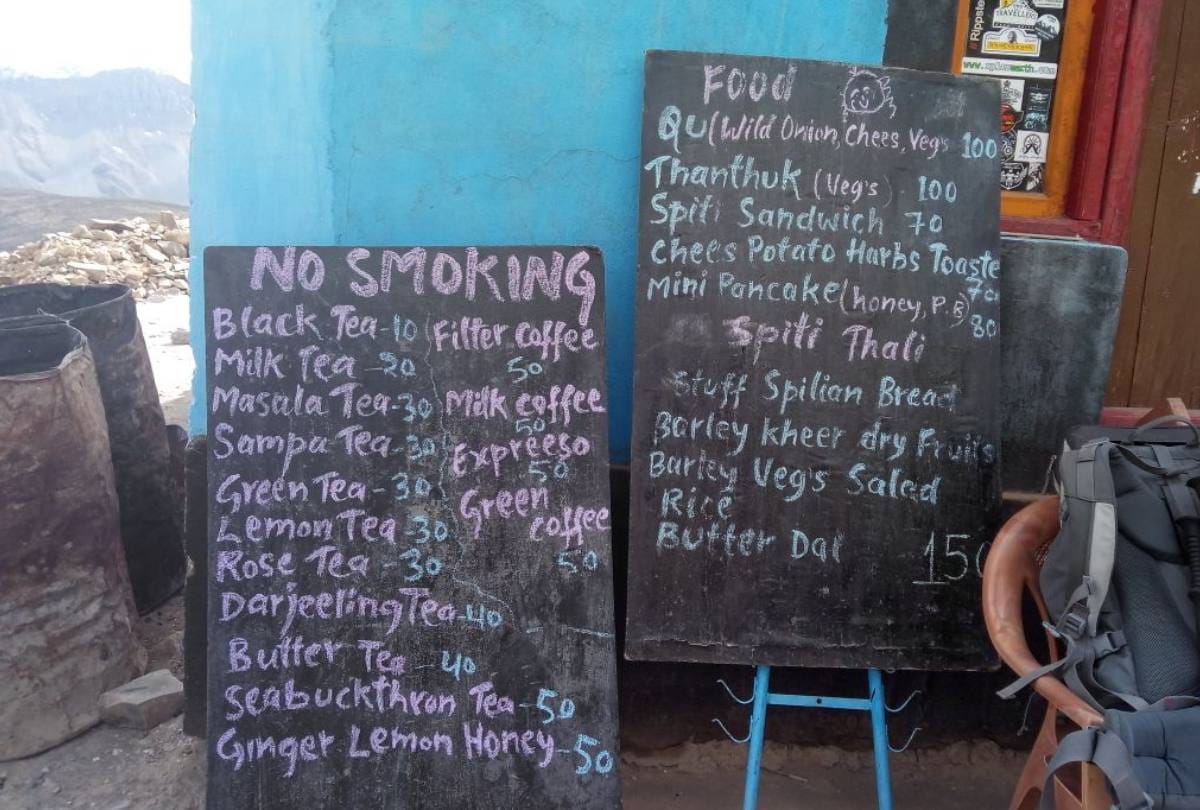 NO SMOKING
Black Tea-10
Milk Tea-20
Masala Tea-30
Sampa Tea-30
Green Tea-30
Lemon Tea 30
Rose Tea-30
Darjeeling Tea-40
Butter Tea-40
Seabuckthron Tea-50
Ginger Lemon Honey-50
Filter coffee
50
Milk coffee
50
Expreeso
50
Green
coffee
50
Food
Qu(Wild Onion, Chees, Veg's 100
Thanthuk (Veg's) 100
Spiti Sandwich 70
Chees Potato Harbs Toaste
70
Mini Pancake(honey, P.B) 80
Spiti Thali
Stuff Spilian Bread
Barley kheer dry Fruits
Barley Veg's Salad
Rice
Butter Dal 150
#Rippste
TRAVELLERS